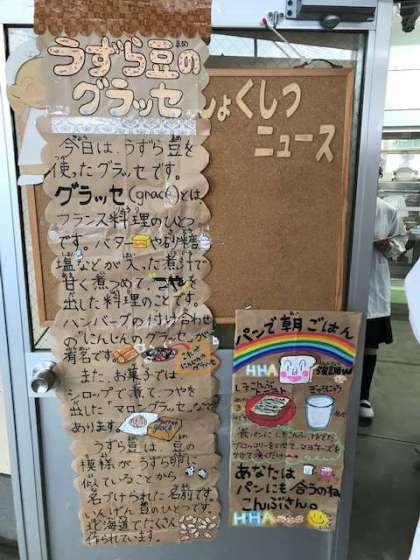 うずら豆の
グラッセ
しょくしつ
ニュース
今日は、うずら豆を
使ったグラッセです。
グラッセ(glacé)とは
フランス料理のひとつ
です。バターや砂糖、
塩などが入った煮汁で
甘く煮つめて、つやを
出した料理のことです。
ハンバーグの付け合わせ
の「にんじんのグラッセ」が
有名です。
また、お菓子では
シロップで煮てつやを
出した「マロングラッセ」など
あります。
うずら豆は、豆の
模様がうずら卵に
似ていることから
名づけられた名前です。
いんげん豆のひとつです。
北海道でたくさん
作られています。
パンで朝ごはん
HHA
しそこんぶ
トースト
ぎゅうにゅう
あなたは
パンにも合うのね
こんぶさん。
HHA